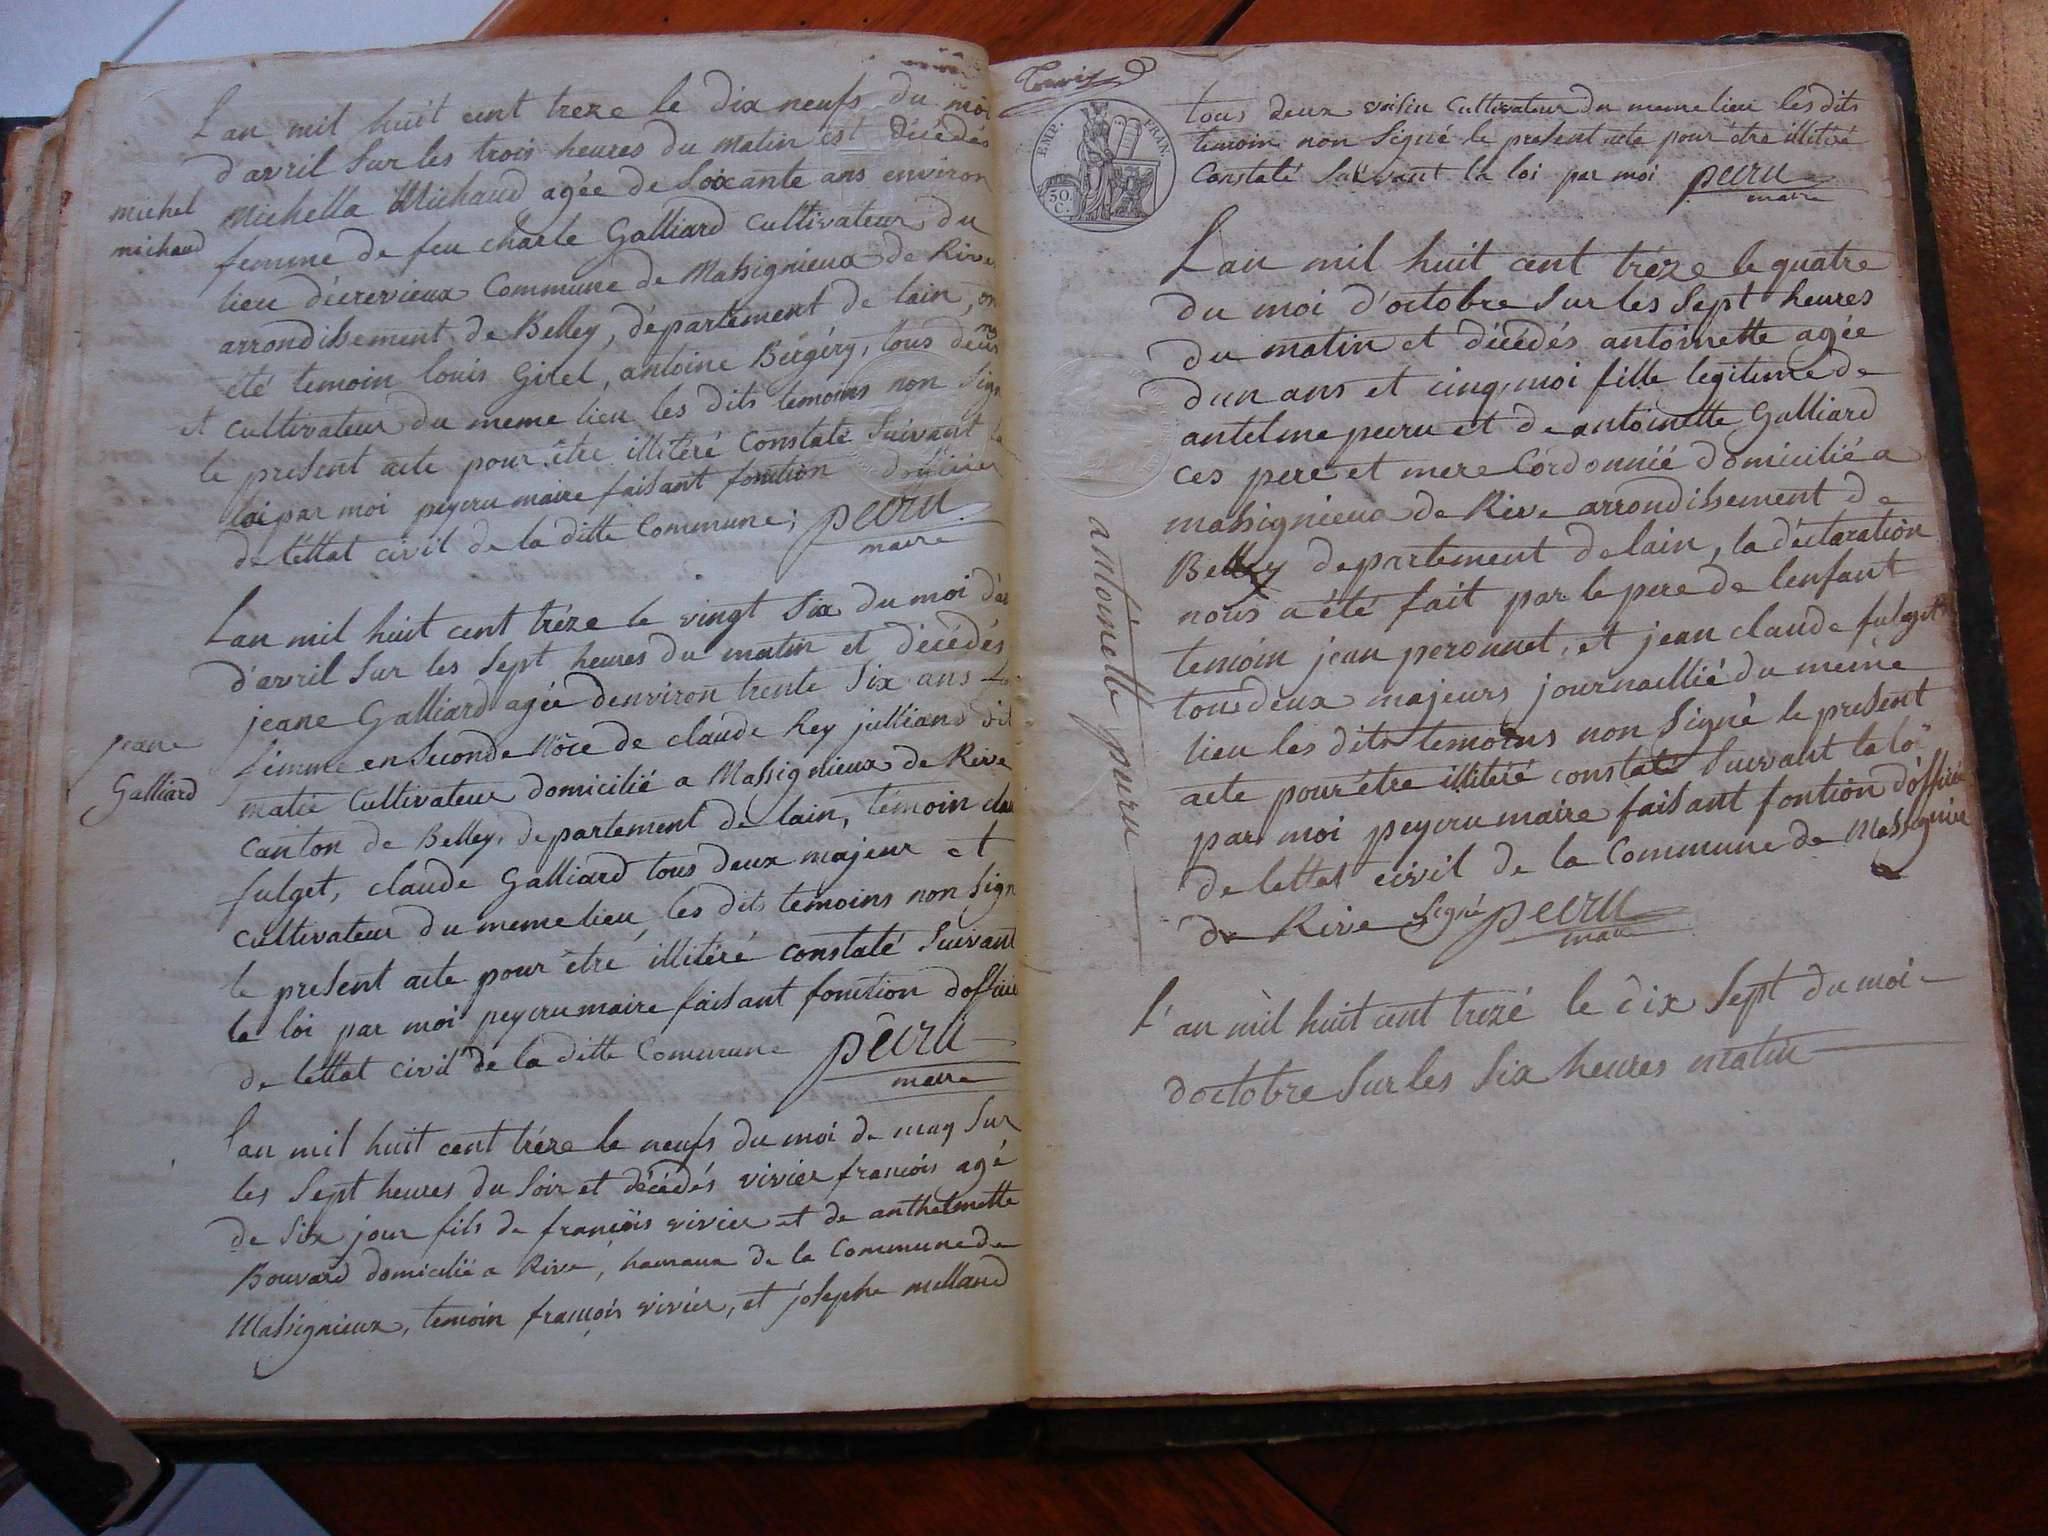 Lan mil huit cent treze le dix neufs du moi
d'avril Sur les trois heures du matin est décédés
michel
michaud
Michella Michaud agée de Soixante ans environ
femme de feu charle Galliard cultivateur du
lieu décrevieux Commune de Massignieux de Rive
arrondissement de Belley, département de lain, on
été temoin louis Girel, antoine Bergéry, tous deux
et cultivateur du meme lieu les dits temoins non Sign
le present acte pour être illitéré Constaté Suivant la
loi par moi peycru maire faisant fonction d'officier
de lettat civil de la ditte Commune; pecru
maire
Lan mil huit cent tréze le vingt Six du moi d'a
d'avril Sur les Sept heures du matin et décédés
jeane
Galliard
jeane Galliard agée denviron trente Six ans
femme en Seconde Nôce de claude Rey jullian dit
matié Cultivateur domicilié a Massignieux de Rive
Canton de Belley, departement de lain, témoin
fulget, claude Galliard tous deux majeur et
cultivateur du meme lieu les dits temoins non Sign
le present acte pour être illitéré constaté Suivant
la loi par moi peycru maire faisant fonction dofficie
de lettat civil de la ditte Commune pecru
maire
l'an mil huit cent tréze le neufs du moi de may Sur
les Sept heures du Soir et décédés vivier francois agé
de Six jour fils de francois vivier et de anthelmette
Bouvard domicilié a Rive, hamaux de la Commune de
Massignieux, temoin francois vivier, et josephe milland
EMP. FRAN.
50
C.
tous deux voisin Cultivateur du meme lieu les dits
temoin non Signé le present acte pour être illitéré
Constaté Suivant la loi par moi pecru
maire
Lan mil huit cent tréze le quatre
du moi d'octobre Sur les Sept heures
du matin et décédés antoinette agée
dun ans et cinq moi fille legitime de
antelme pecru et de antoinette Galliard
ces pere et mere Cordonnié domicilié a
massignieux de Rive arrondissement de
Belley departement de lain, la déclaration
nous a été fait par le pere de lenfant
antoinette pecru
temoin jean peronnet, et jean claude fulget
tous deux majeurs journallié du meme
lieu les dits temoins non Signé le present
acte pour être illitéré constaté Suivant la loi
par moi peycru maire faisant fontion d'officie
de lettat civil de la Commune de Massignieu
de Rive Signé pecru
maire
l'an mil huit cent trezé le dix Sept du moi
doctobre Sur les Six heures matin